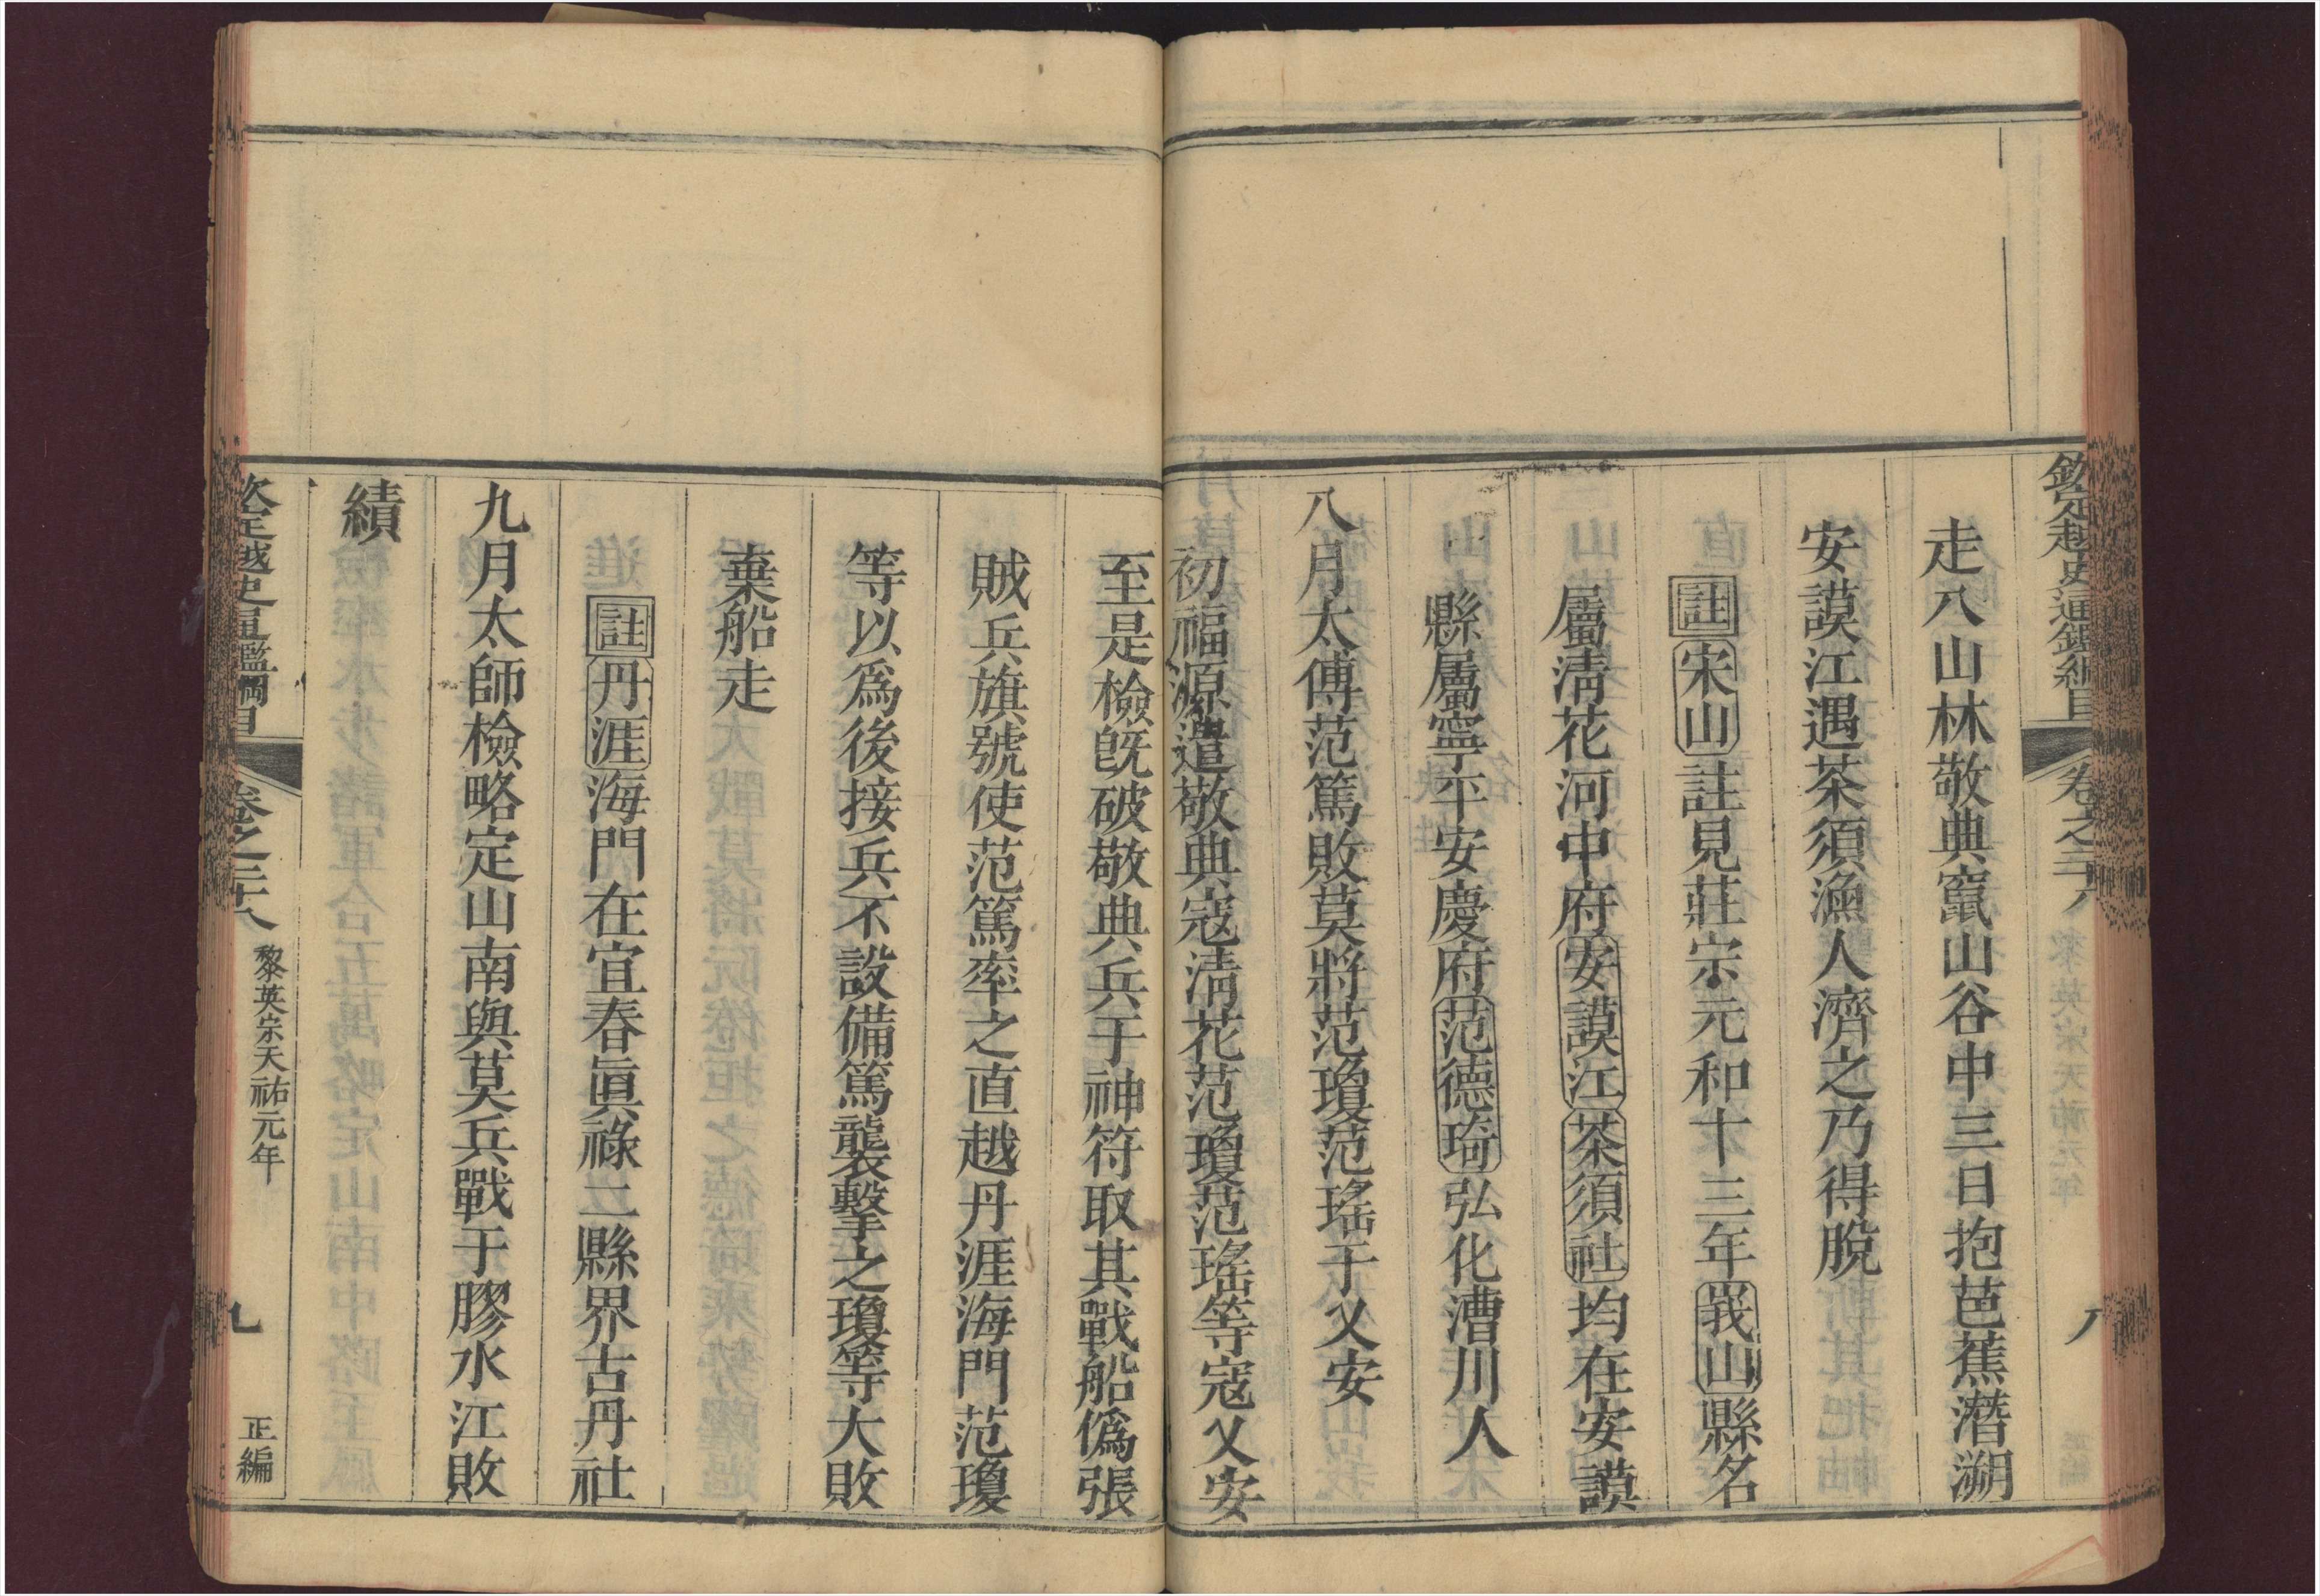 欽定越史通鑑綱目 卷之二十八 八
走入山林敬典竄山谷中三日抱芭蕉潛溯
安謨江遇茶須漁人濟之乃得脫
註宋山註見莊宗元和十三年峩山縣名
屬淸花河中府安謨江茶須社均在安謨
縣屬寧平安慶府范德琦弘化漕川人
八月太傅范篤敗莫將范瓊范瑤于乂安
初福源遣敬典寇淸花范瓊范瑤等寇乂安
至是檢旣破敬典兵于神符取其戰船僞張
賊兵旗號使范篤率之直越丹涯海門范瓊
等以爲後接兵不設備篤襲擊之瓊等大敗
棄船走
註丹涯海門在宜春眞祿二縣界古丹社
九月太師檢略定山南與莫兵戰于膠水江敗
績
欽定越史通鑑綱目 卷之二十八 黎英宗天祐元年 九 正編